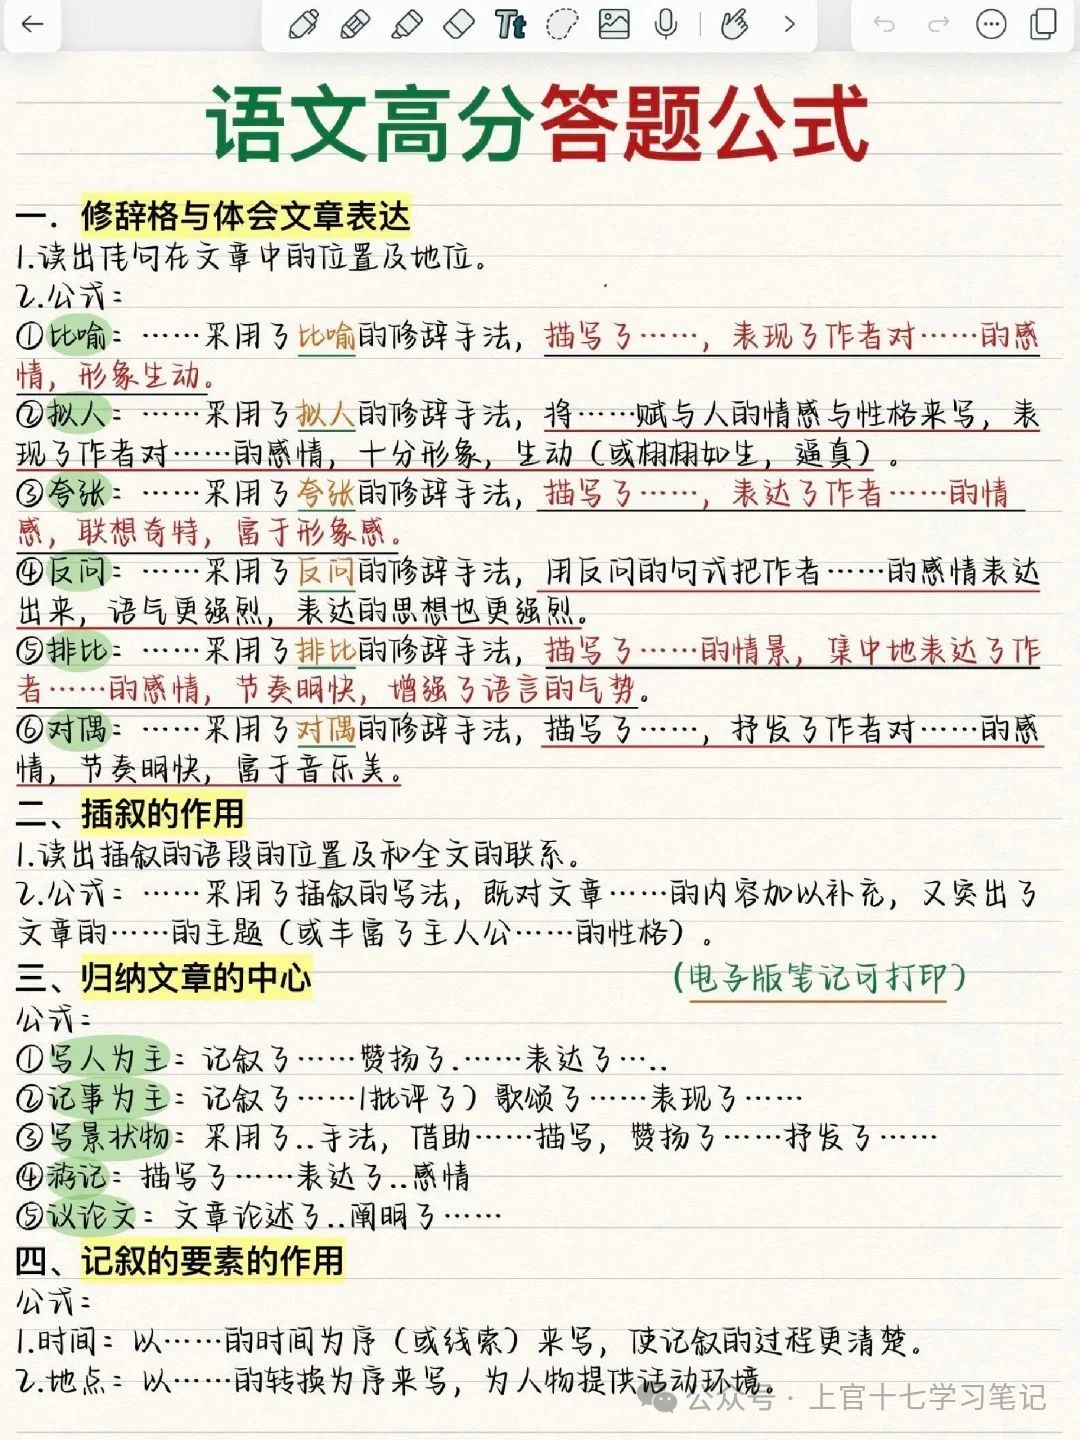 Tt
语文高分答题公式
一. 修辞格与体会文章表达
1.读出佳句在文章中的位置及地位。
2.公式:
①比喻: ……采用了比喻的修辞手法, 描写了……, 表现了作者对……的感
情, 形象生动。
②拟人: ……采用了拟人的修辞手法, 将……赋与人的情感与性格来写, 表
现了作者对……的感情, 十分形象, 生动 (或栩栩如生, 逼真) 。
③夸张: ……采用了夸张的修辞手法, 描写了……, 表达了作者……的情
感, 联想奇特, 富于形象感。
④反问: ……采用了反问的修辞手法, 用反问的句式把作者……的感情表达
出来, 语气更强烈, 表达的思想也更强烈。
⑤排比: ……采用了排比的修辞手法, 描写了……的情景, 集中地表达了作
者……的感情, 节奏明快, 增强了语言的气势。
⑥对偶: ……采用了对偶的修辞手法, 描写了……, 抒发了作者对……的感
情, 节奏明快, 富于音乐美。
二、插叙的作用
1.读出插叙的语段的位置及和全文的联系。
2.公式: ……采用了插叙的写法, 既对文章……的内容加以补充, 又突出了
文章的……的主题 (或丰富了主人公……的性格) 。
三、归纳文章的中心
(电子版笔记可打印)
公式:
①写人为主: 记叙了……赞扬了.……表达了…..
②记事为主: 记叙了……/批评了) 歌颂了……表现了……
③写景状物: 采用了..手法, 借助……描写, 赞扬了……抒发了……
④游记: 描写了……表达了..感情
⑤议论文: 文章论述了..阐明了……
四、记叙的要素的作用
公式:
1.时间: 以……的时间为序 (或线索) 来写, 使记叙的过程更清楚。
2.地点: 以……的转换为序来写, 为人物提供活动环境。
公众号 · 上官十七学习笔记